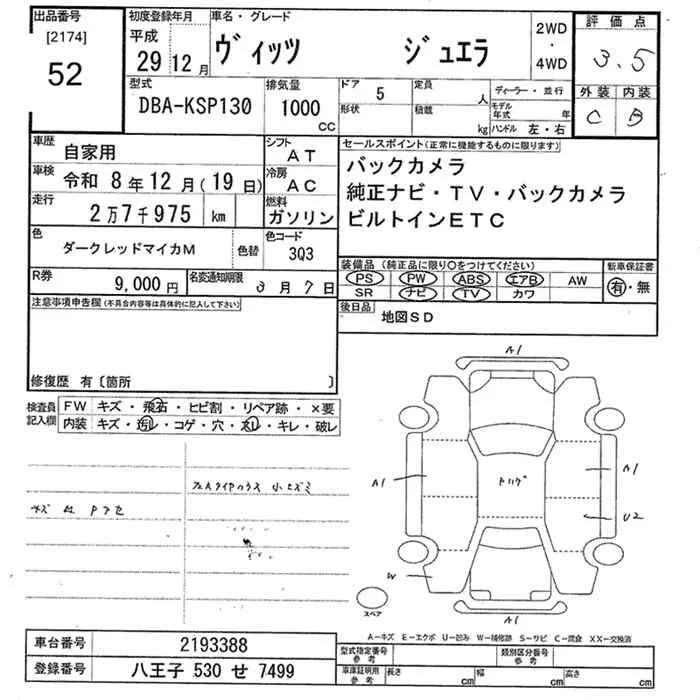 出品番号 [2174] 52
初度登録年月 平成 29年 12月
車名・グレード ヴィッツ ジュエラ
2WD・4WD
評価点 3.5
外装 C 内装 B
型式 DBA-KSP130
排気量 1000 CC
ドア 5 形状
定員 人 積載 kg
ディーラー・並行
モデル年式 年
ハンドル 左・右
車歴 自家用
シフト AT
車検 令和 8年 12月(19日)
冷房 AC
走行 2万7千975 km
燃料 ガソリン
色 ダークレッドマイカM 色替
色コード 3Q3
R券 9,000円
名変通知期限 3月 7日
セールスポイント(正常に機能するものに限ります)
バックカメラ
純正ナビ・TV・バックカメラ
ビルトインETC
装備品 (純正品に限り○をつけてください)
PS PW ABS エアB AW
SR ナビ TV カワ
新車保証書 有・無
後日品 地図SD
注意事項申告欄(不具合内容等は具体的に記入して下さい)
修復歴 有〔箇所 〕
検査員記入欄
FW キズ・飛石・ヒビ割・リペア跡・×要
内装 キズ・汚レ・コゲ・穴・スレ・キレ・破レ
A1
A1
A1
トリプ
U2
W
A1
スペア
A−キズ E−エクボ U−凹み W−補修跡 S−サビ C−腐食 XX−交換済
車台番号 2193388
登録番号 八王子 530 せ 7499
型式指定番号 参考
類別区分番号 参考
車庫証明用 参考 長さ cm 幅 cm 高さ cm